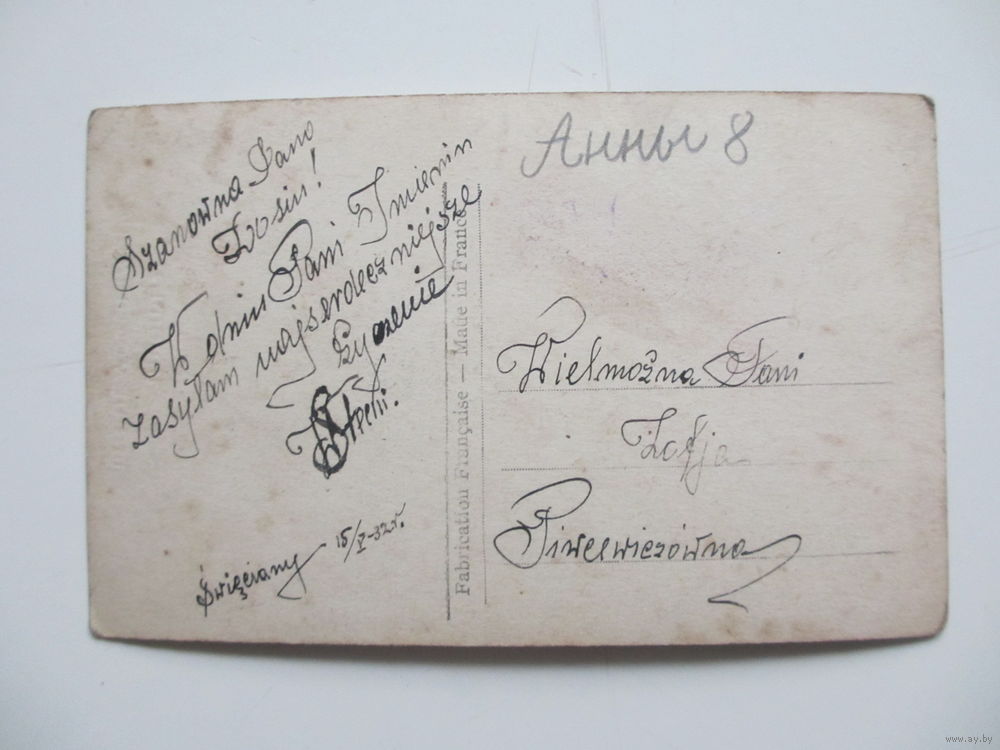 Szanowna Pano
Zosiu!
W dniu Pani Imienin
zasyłam najserdeczniejsze
życzenie
Święciany 15/V-32r.
Fabrication Française — Made in France
Анны 8
Wielmożna Pani
Zofja
www.ay.by